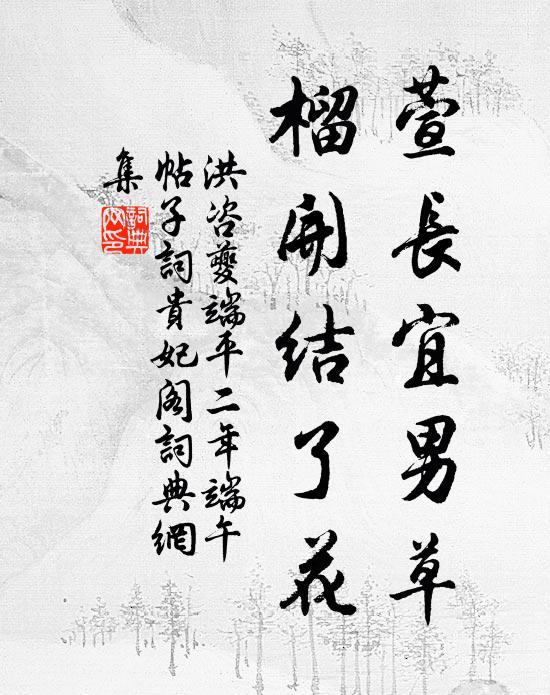 萱長宜男草
榴開結了花
洪咨夔端平二年端午
帖子詞貴妃閣詞典網
集
詞典
网印